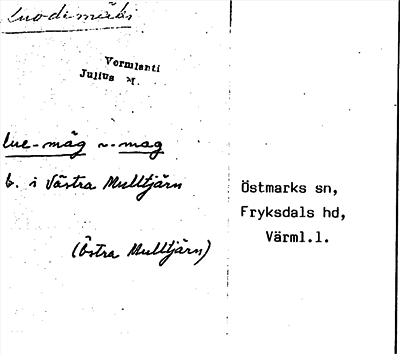 Luodemäki
Vermlanti
Julius M.
lue-mäg ~ -mag
b. i Västra Mulltjärn
(Östra Mulltjärn)
Östmarks sn,
Fryksdals hd,
Värml.l.